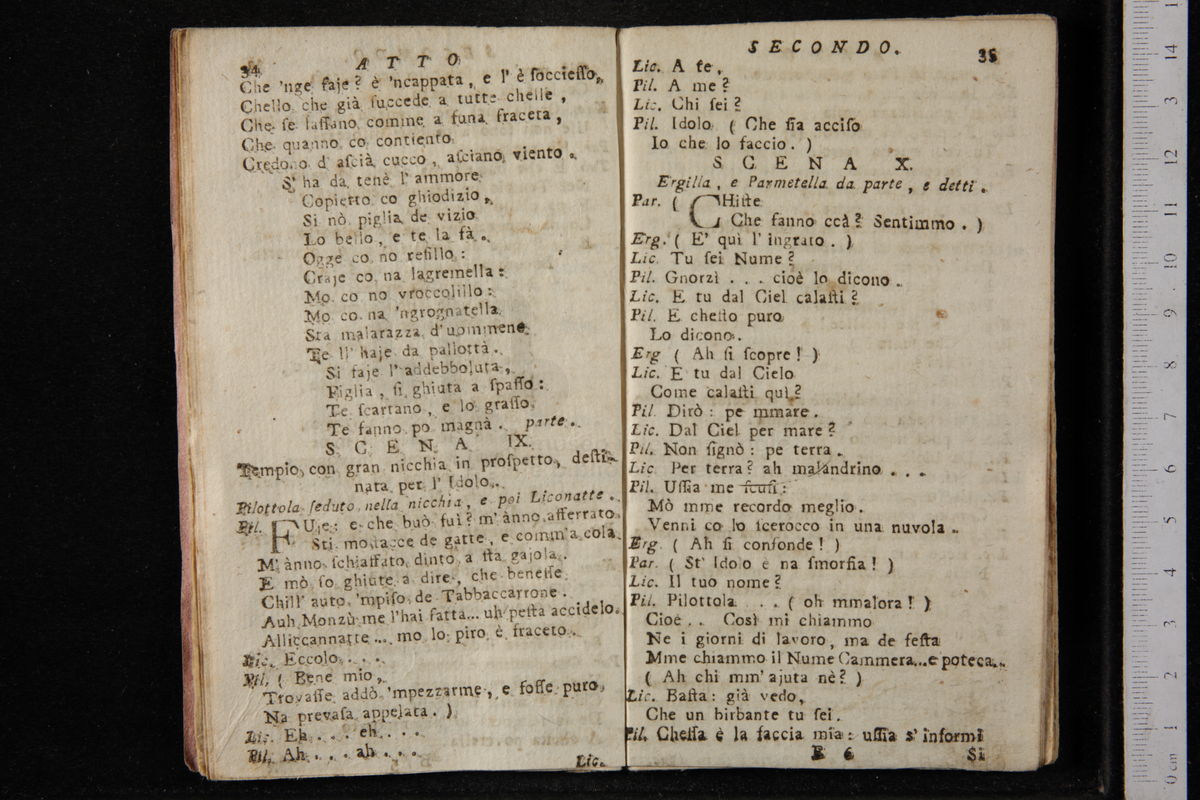 34
ATTO
Che 'nge faje? è 'ncappata, e l' è ſoccieſſo,
Chello che già ſuccede a tutte chelle,
Che ſe laſſano comme a funa fraceta,
Che quanno co contiento
Credono d' aſcià cucco, aſciano viento.
S' ha da tenè l' ammore
Copierto co ghiodizio,
Si nò piglia de vizio
Lo bello, e te la fà.
Ogge co no reſillo:
Craje co na lagremella:
Mo co no vroccolillo:
Mo co na 'ngrognatella
Sta malarazza d'uommene
Te ll' haje da pallottà.
Si faje l'addebboluta,
Figlia, ſi ghiuta a ſpaſſo:
Te ſcartano, e lo graſſo
Te fanno po magnà. parte.
SCENA IX.
Tempio con gran nicchia in proſpetto, deſti-
nata per l' Idolo.
Pilottola ſeduto nella nicchia, e poi Liconatte.
Pil. FUje: e che buò fuì? m' ànno afferrato
Sti moſtacce de gatte, e comm'a cola
M' ànno ſchiaffato dinto a ſta gajola.
E mò ſo ghiute a dire, che beneſſe
Chill' auto 'mpiſo de Tabbaccarrone.
Auh Monzù me l'hai fatta... uh peſta accidelo
Alliccannatte... mo lo piro è fraceto.
Lic. Eccolo....
Pil. ( Bene mio,
Trovaſſe addò 'mpezzarme, e foſſe puro
Na prevaſa appelata. )
Lic. Eh... eh....
Pil. Ah... ah...
Lic.
SECONDO.
35
Lic. A te,
Pil. A me?
Lic. Chi ſei?
Pil. Idolo ( Che ſia acciſo
Io che lo faccio. )
SCENA X.
Ergilla, e Parmetella da parte, e detti.
Par. ( CHiſte
Che fanno ccà? Sentimmo. )
Erg. ( E' quì l' ingrato. )
Lic. Tu ſei Nume?
Pil. Gnorzì... cioè lo dicono.
Lic. E tu dal Ciel calaſti?
Pil. E cheſto puro
Lo dicono.
Erg ( Ah ſi ſcopre! )
Lic. E tu dal Cielo
Come calaſti quì?
Pil. Dirò: pe mmare.
Lic. Dal Ciel per mare?
Pil. Non ſignò: pe terra.
Lic. Per terra? ah malandrino...
Pil. Uſſia me ſcuſi:
Mò mme recordo meglio.
Venni co lo ſcerocco in una nuvola.
Erg. ( Ah ſi confonde! )
Par. ( St' Idolo è na ſmorfia! )
Lic. Il tuo nome?
Pil. Pilottola... ( oh mmalora! )
Cioè.. Così mi chiammo
Ne i giorni di lavoro, ma de feſta
Mme chiammo il Nume Cammera...e poteca..
( Ah chi mm' ajuta nè? )
Lic. Baſta: già vedo,
Che un birbante tu ſei.
Pil. Cheſſa è la faccia mia: uſſia s' informi
B 6
Si